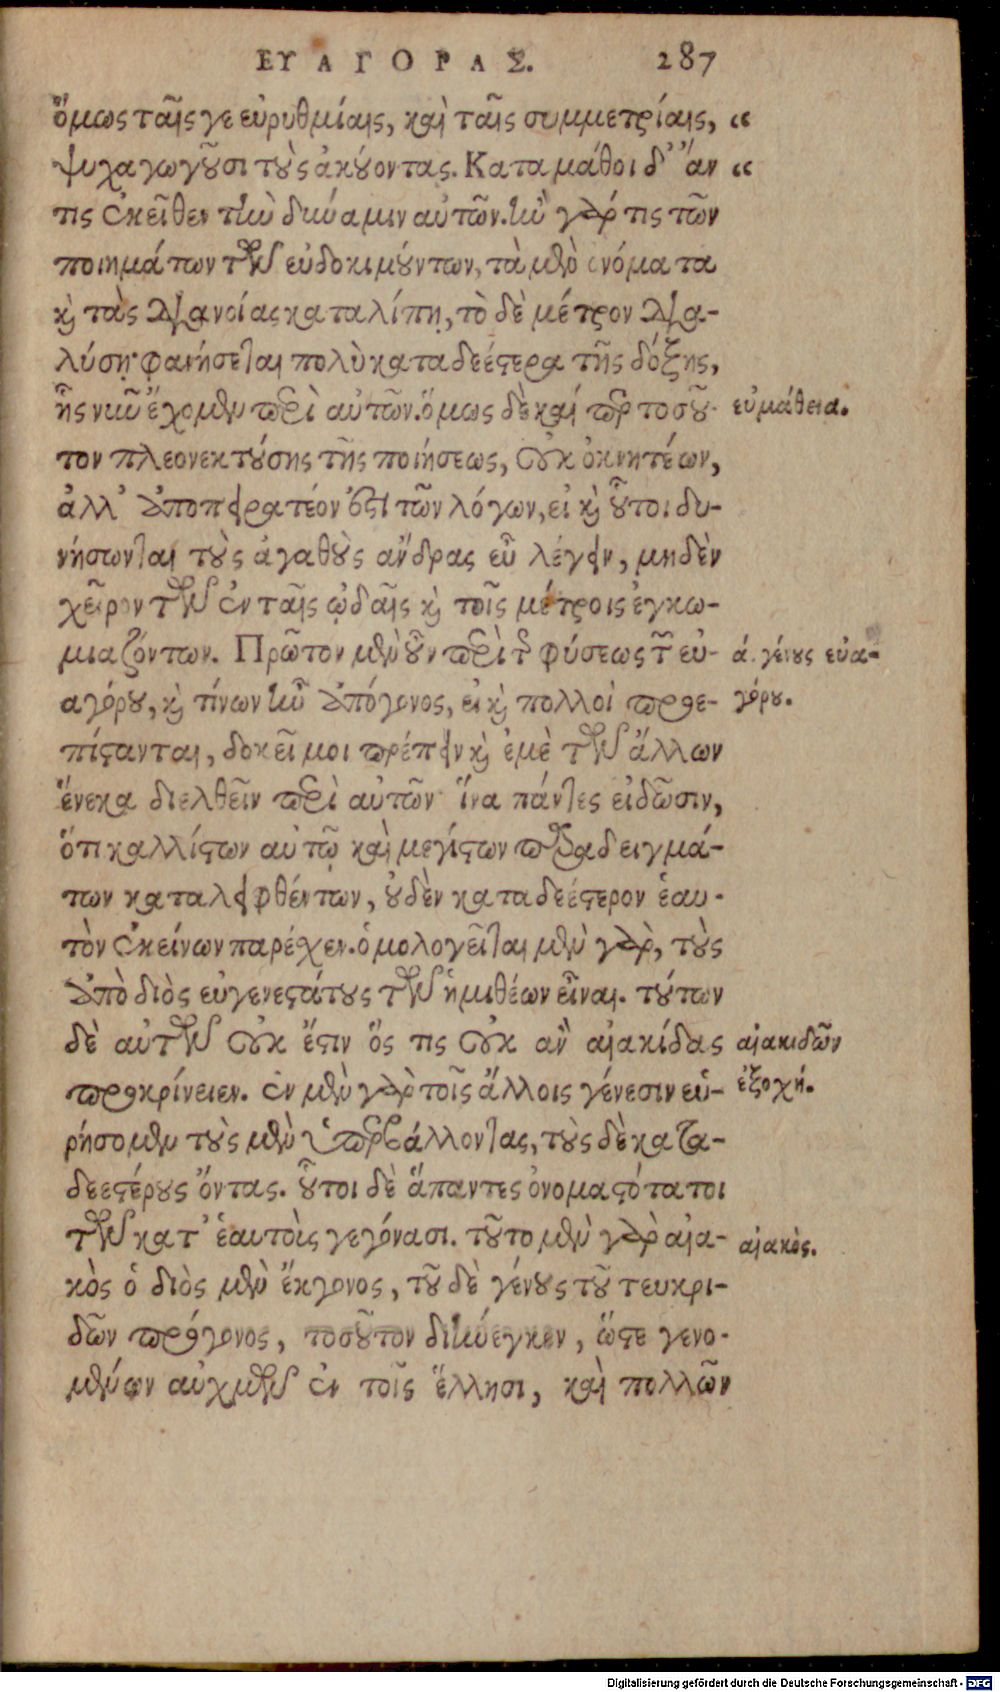 ΕΥΑΓΟΡΑΣ. 287
ὅμως ταῖς γε εὐρυθμίαις, καὶ ταῖς συμμετρίαις, “
ψυχαγωγοῦσι τοὺς ἀκούοντας. Καταμάθοι δ' ἄν “
τις ἐκεῖθεν τὴν δύναμιν αὐτῶν. ἢν γάρ τις τῶν
ποιημάτων τῶν εὐδοκιμούντων, τὰ μὲν ὀνόματα
καὶ τὰς διανοίας καταλίπῃ, τὸ δὲ μέτρον δια-
λύσῃ· φανήσεται πολὺ καταδεέστερα τῆς δόξης,
ἧς νῦν ἔχομεν περὶ αὐτῶν. ὅμως δὲ καίπερ τοσοῦ- εὐμάθεια.
τον πλεονεκτούσης τῆς ποιήσεως, οὐκ ὀκνητέων,
ἀλλ' ἀποπειρατέον ἐστὶ τῶν λόγων, εἰ καὶ οὗτοι δυ-
νήσωνται τοὺς ἀγαθοὺς ἄνδρας εὖ λέγειν, μηδὲν
χεῖρον τῶν ἐν ταῖς ᾠδαῖς καὶ τοῖς μέτροις ἐγκω-
μιαζόντων. Πρῶτον μὲν οὖν περὶ τῆς φύσεως τῆς εὐ- ά. γένους εὐα-
αγόρου, καὶ τίνων ἦν ἀπόγονος, εἰ καὶ πολλοὶ προε- γόρου.
πίστανται, δοκεῖ μοι πρέπειν καὶ ἐμὲ τῶν ἄλλων
ἕνεκα διελθεῖν περὶ αὐτῶν ἵνα πάντες εἰδῶσιν,
ὅτι καλλίστων αὐτῷ καὶ μεγίστων παραδειγμά-
των καταλειφθέντων, οὐδὲν καταδεέστερον ἑαυ-
τὸν ἐκείνων παρέχεν. ὁμολογεῖται μὲν γὰρ, τοὺς
ἀπὸ διὸς εὐγενεστάτους τῶν ἡμιθέων εἶναι. τούτων
δὲ αὐτῶν οὐκ ἔστιν ὅς τις οὐκ ἂν αἰακίδας αἰακιδῶν
προκρίνειεν. ἐν μὲν γὰρ τοῖς ἄλλοις γένεσιν εὑ- ἐξοχή.
ρήσομεν τοὺς μὲν ὑπερβάλλοντας, τοὺς δὲ κατα-
δεεστέρους ὄντας. οὗτοι δὲ ἅπαντες ὀνομαστότατοι
τῶν κατ' ἑαυτοὺς γεγόνασι. τοῦτο μὲν γὰρ αἰα- αἰακός.
κὸς ὁ διὸς μὲν ἔκγονος, τοῦ δὲ γένους τοῦ τευκρι-
δῶν πρόγονος, τοσοῦτον διήνεγκεν, ὥστε γενο-
μένων αὐχμῶν ἐν τοῖς ἕλλησι, καὶ πολλῶν
Digitalisierung gefördert durch die Deutsche Forschungsgemeinschaft - DFG